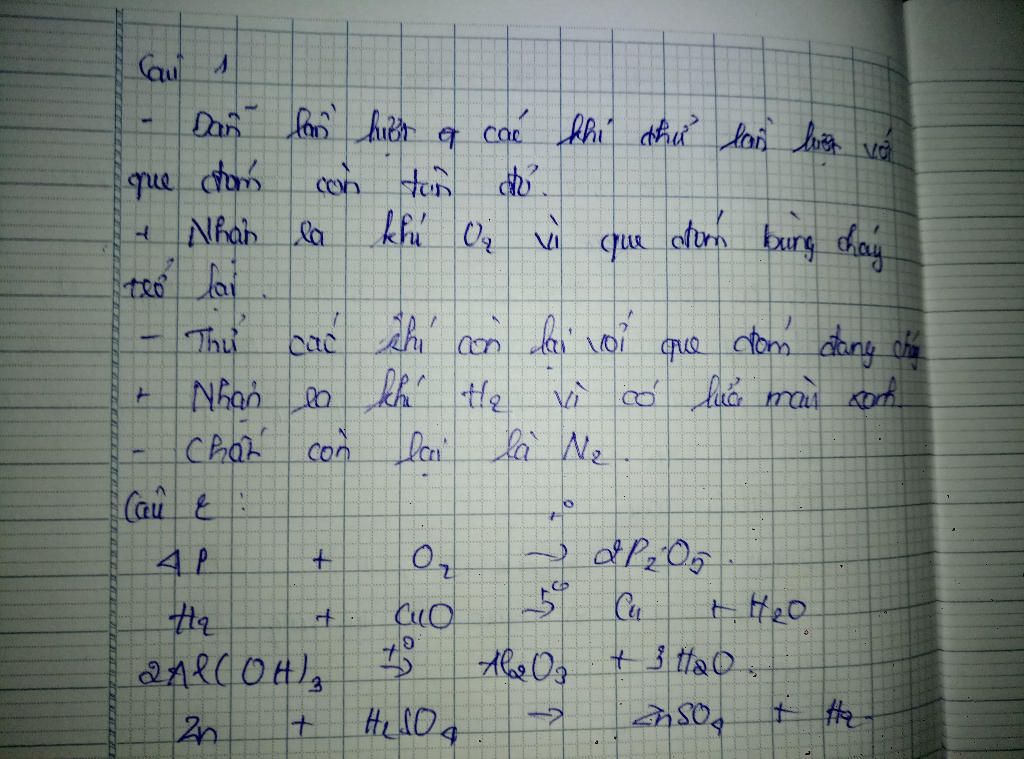 Câu 1
- Dẫn lần lượt các khí thử lần lượt với
que đóm còn tàn đỏ.
+ Nhận ra khí O₂ vì que đóm bùng cháy
trở lại.
- Thử các khí còn lại với que đóm đang cháy
+ Nhận ra khí H₂ vì có lửa màu xanh
- Chất còn lại là N₂.
Câu 2:
4P + O₂ t° → 2P₂O₅.
H₂ + CuO t° → Cu + H₂O
2Al(OH)₃ t° → Al₂O₃ + 3H₂O.
Zn + H₂SO₄ → ZnSO₄ + H₂